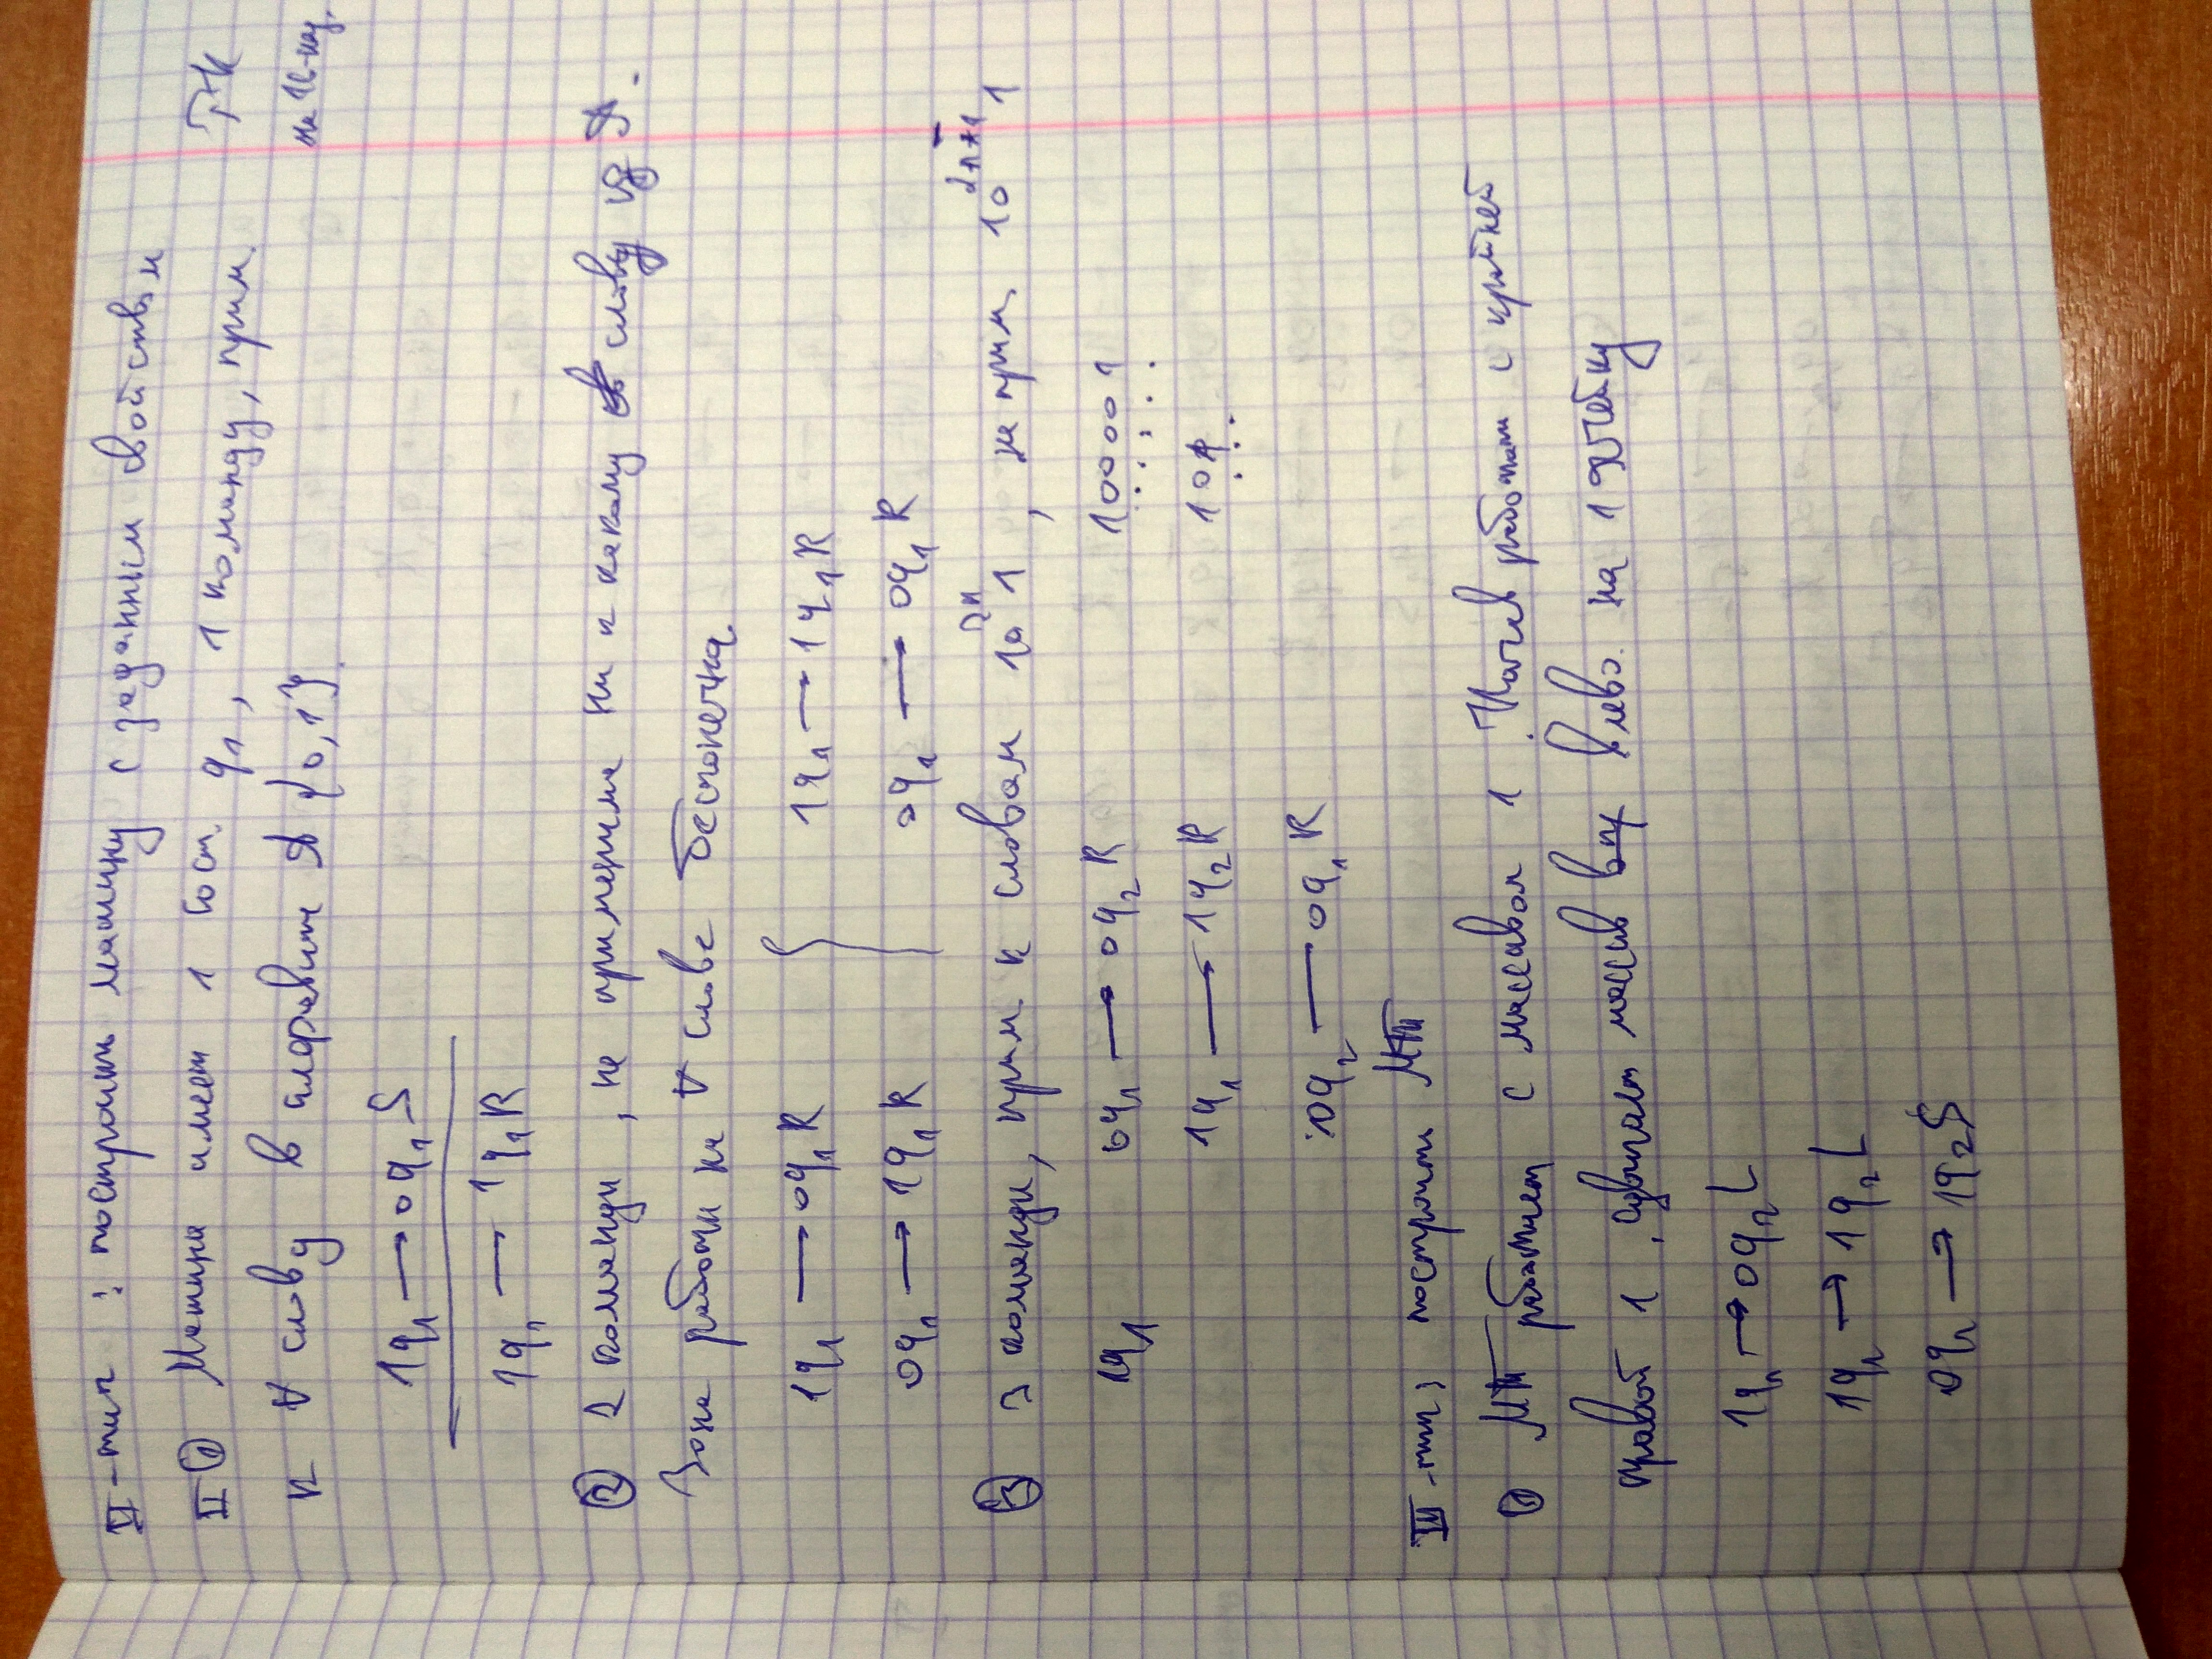 II -тип : построить машину с заданным свойствам
II ① Машина имеет 1 сост q₁, 1 команду, прим. Т→К
к ∀ слову в алфавит A {0,1}. на 1 в-нач.
1q₁ → 0q₁S
1q₁ → 1q₁R
② 2 команды, не применима ни к какому слову из A.
Зона работы на ∀ слове бесконечна.
1q₁ → 0q₁R { 1q₁ → 1q₁R
0q₁ → 1q₁R 0q₁ → 0q₁R
③ 3 команды, прим к словам 10²ⁿ1, не прим. 10²ⁿ⁺¹1
1q₁ 0q₁ → 0q₂R 100001
1q₁ → 1q₂R 101
0q₂ → 0q₁R
III -тип; построить МТ
① МТ работает с массивом 1. Начав работать с крайней
правой 1, сдвигает массив влево. на 1 ячейку
1q₁ → 0q₂L
1q₂ → 1q₂L
0q₂ → 1q₂S